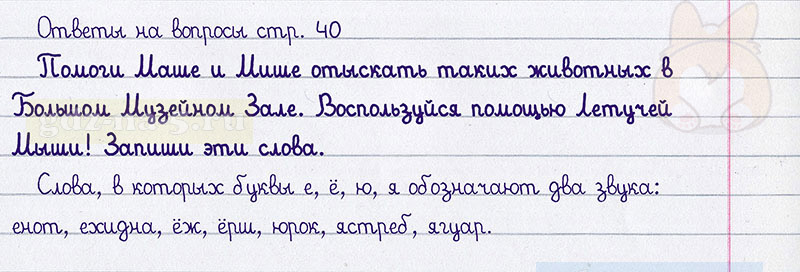 Ответы на вопросы стр. 40
Помоги Маше и Мише отыскать таких животных в
Большом Музейном Зале. Воспользуйся помощью Летучей
Мыши! Запиши эти слова.
Слова, в которых буквы е, ё, ю, я обозначают два звука:
енот, ехидна, ёж, ёрш, юрок, ястреб, ягуар.